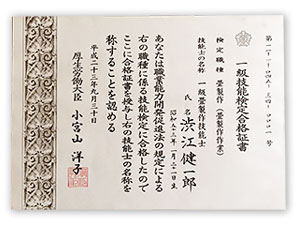 一級技能検定合格証書
検定職種 畳製作(畳製作作業)
技能士の名称 一級畳製作技能士
氏名 渋江健一郎
あなたは職業能力開発促進法の規定による
右の職種に係る技能検定に合格したので
ここに合格証書を授与し右の技能士の名称を
称することを認める
平成二十三年九月三十日
厚生労働大臣 小宮山 洋子